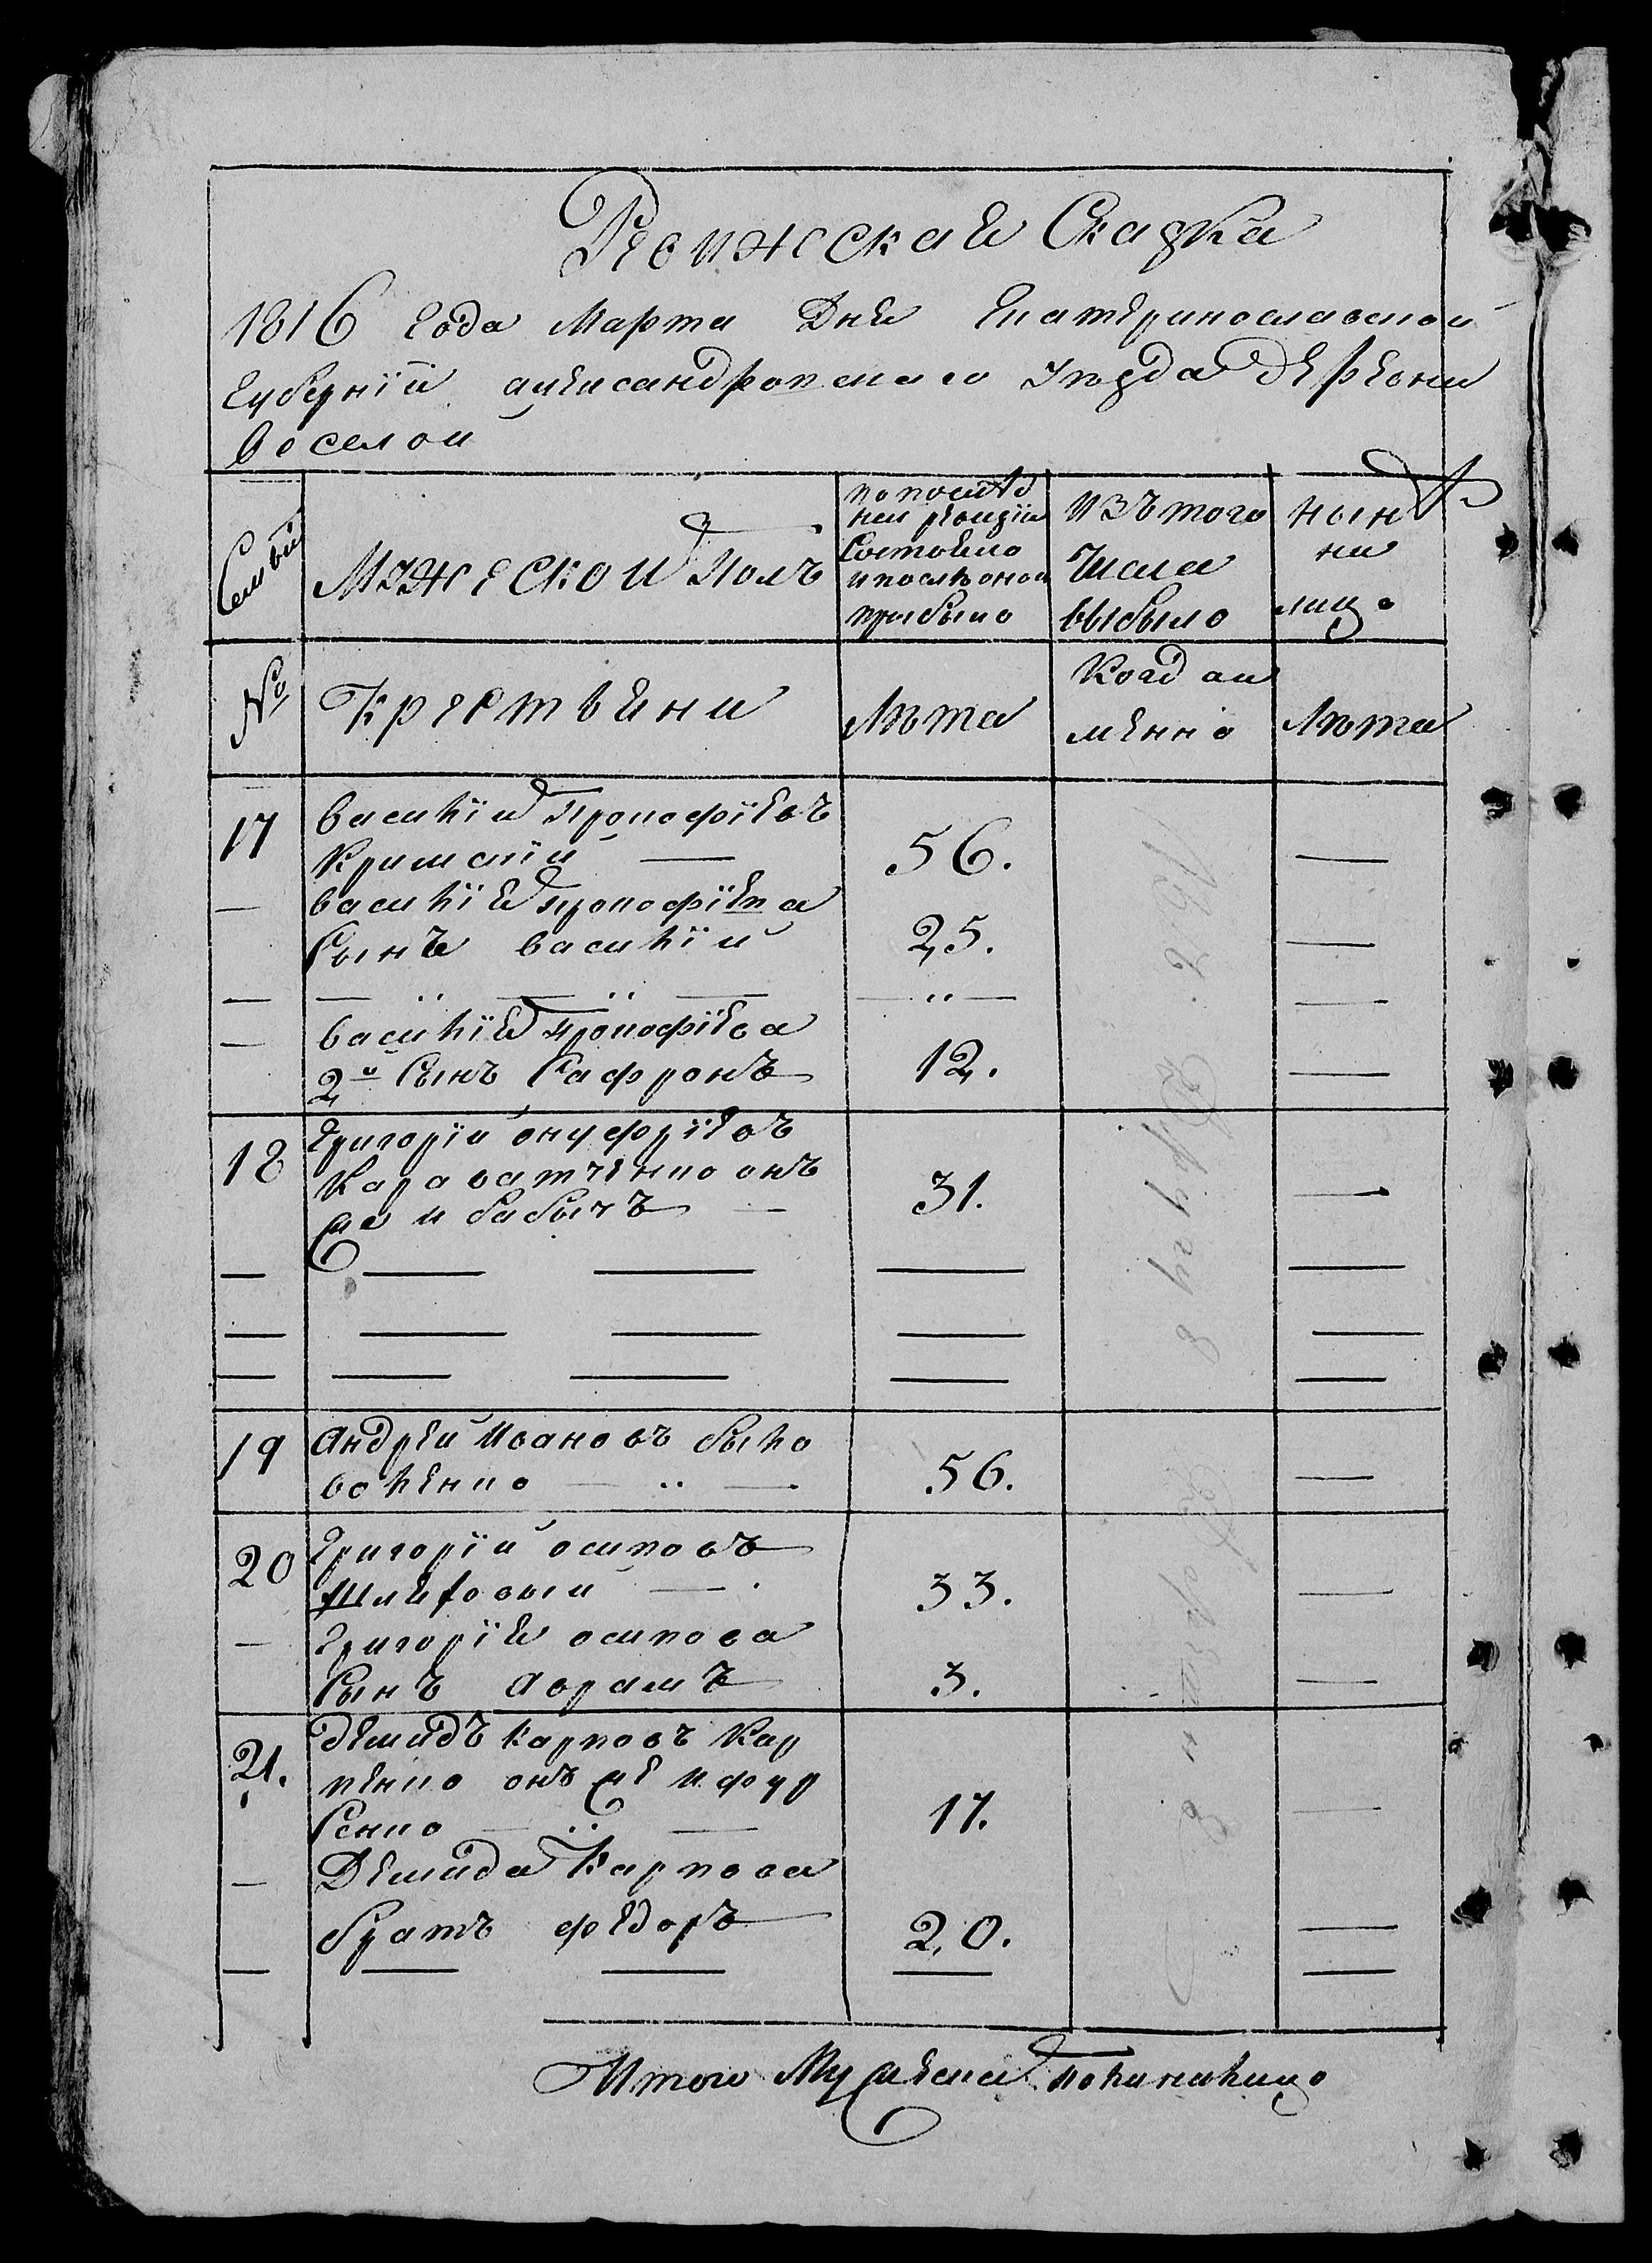 Ревижская Сказка
1816 года Марта Дня Екатеринославской
Губернїй александровскаго уезда деревни
веселой
Семьи
Мужеской полъ
по послед
ней ревизїи
Состояло
и после оной
прибыло
Изъ того
Числа
выбыло
нын
ни
лицо
№
Крестьяни
Лѣта
Когда и
менно
Лѣта
17
Василїй Прокофїевъ
Кримскїй
56.
Василїя прокофїева
Сынъ василїй
25.
Василїя Прокофїева
2й Сынъ Сафронъ
12.
18
Григорїй онуфрїевъ
Караватченко онъ
же и бабычъ
31.
19
Андрей Ивановъ быко
воленко
56.
20
Григорїй осиповъ
Шляховый
33.
Григорїя осипова
Сынъ аврамъ
3.
21.
Демидъ Карповъ Кар
пенко онъ же и фур
Сенко
17.
Демида Карпова
братъ федоръ
20.
Итого Мужеска пола налицо